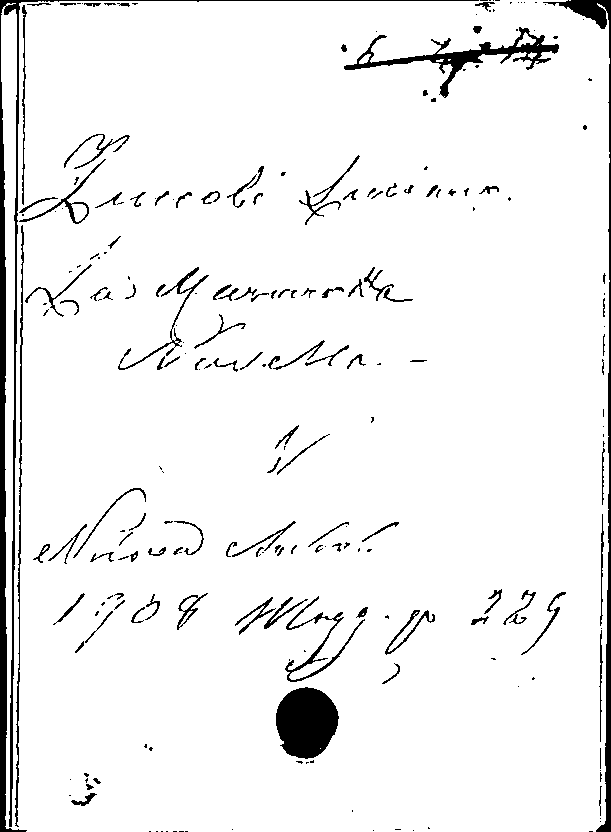 Zuccoli Luciano.
La Marmotta
Novella. –
Nuova Antol.
1908 Magg. p 229